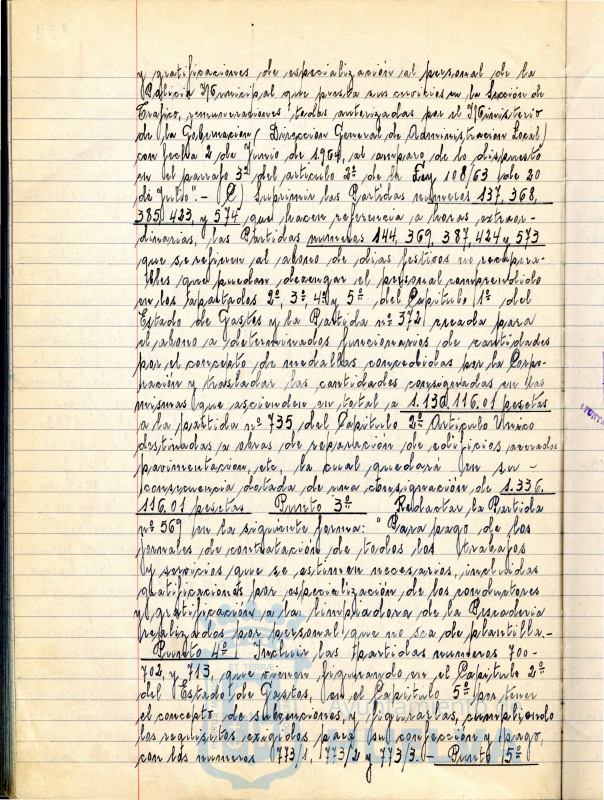 y gratificaciones de especialización al personal de la
Policia Municipal que presta sus servicios en la Sección de
Trafico, remuneraciones todas autorizadas por el Ministerio
de la Gobernacion (Direccion General de Administracion Local)
con fecha 2 de Junio de 1.964, al amparo de lo dispuesto
en el parrafo 3º del articulo 2º de la Ley 108/63 de 20
de Julio".- (C) Suprimir las Partidas numeros 137, 368,
385, 423, y 574 que hacen referencia a horas extraor-
dinarias, las Partidas numeros 144, 369, 387, 424 y 573
que se refieren al abono de dias festivos no recupera-
bles que puedan devengar el personal comprendido
en los apartados 2º, 3º, 4º y 5º del Capitulo 1º del
Estado de Gastos y la Partida nº 372, creada para
el abono a determinados funcionarios de cantidades
por el concepto de medallas concedidas por la Corpo-
racion y trasladar las cantidades consignadas en las
mismas que ascienden en total a 1.130.116,01 pesetas
a la partida nº 735 del Capitulo 2º Articulo Unico
destinadas a obras de reparación de edificios
pavimentacion, etc, la cual quedará en su
consecuencia dotada de una consignación de 1.336.
116,01 pesetas Punto 3º Redactar la Partida
nº 569 en la siguiente forma: "Para pago de los
jornales de contratación de todos los trabajos
y servicios que se estimen necesarios, incluidas
gratificaciones por especialización de los conductores
y gratificación a la limpiadora de la Pescaderia
realizados por personal que no sea de plantilla.-
Punto 4º Incluir las Partidas numeros 700-
702, y 713, que vienen figurando en el Capitulo 2º
del Estado de Gastos, en el Capitulo 5º por tener
el concepto de subvenciones y figurarlas, cumpliendo
los requisitos exigidos para su confección y pago,
con los numeros 773/1, 773/2 y 773/3.- Punto 5º
ET TERRA
Ayuntamiento de